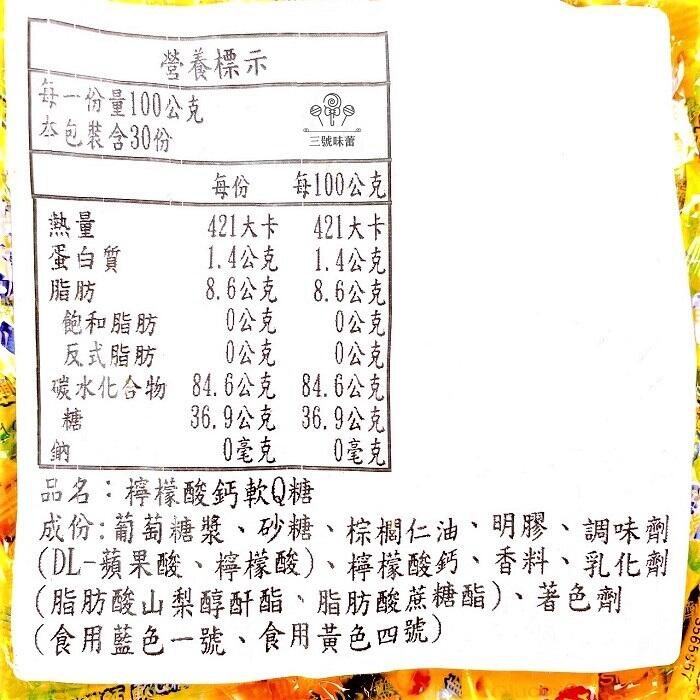 營養標示
每一份量100公克
本包裝含30份
三號味蕾
每份 每100公克
熱量 421大卡 421大卡
蛋白質 1.4公克 1.4公克
脂肪 8.6公克 8.6公克
飽和脂肪 0公克 0公克
反式脂肪 0公克 0公克
碳水化合物 84.6公克 84.6公克
糖 36.9公克 36.9公克
鈉 0毫克 0毫克
品名：檸檬酸鈣軟Q糖
成份:葡萄糖漿、砂糖、棕櫚仁油、明膠、調味劑
(DL-蘋果酸、檸檬酸)、檸檬酸鈣、香料、乳化劑
(脂肪酸山梨醇酐酯、脂肪酸蔗糖酯)、著色劑
(食用藍色一號、食用黃色四號)